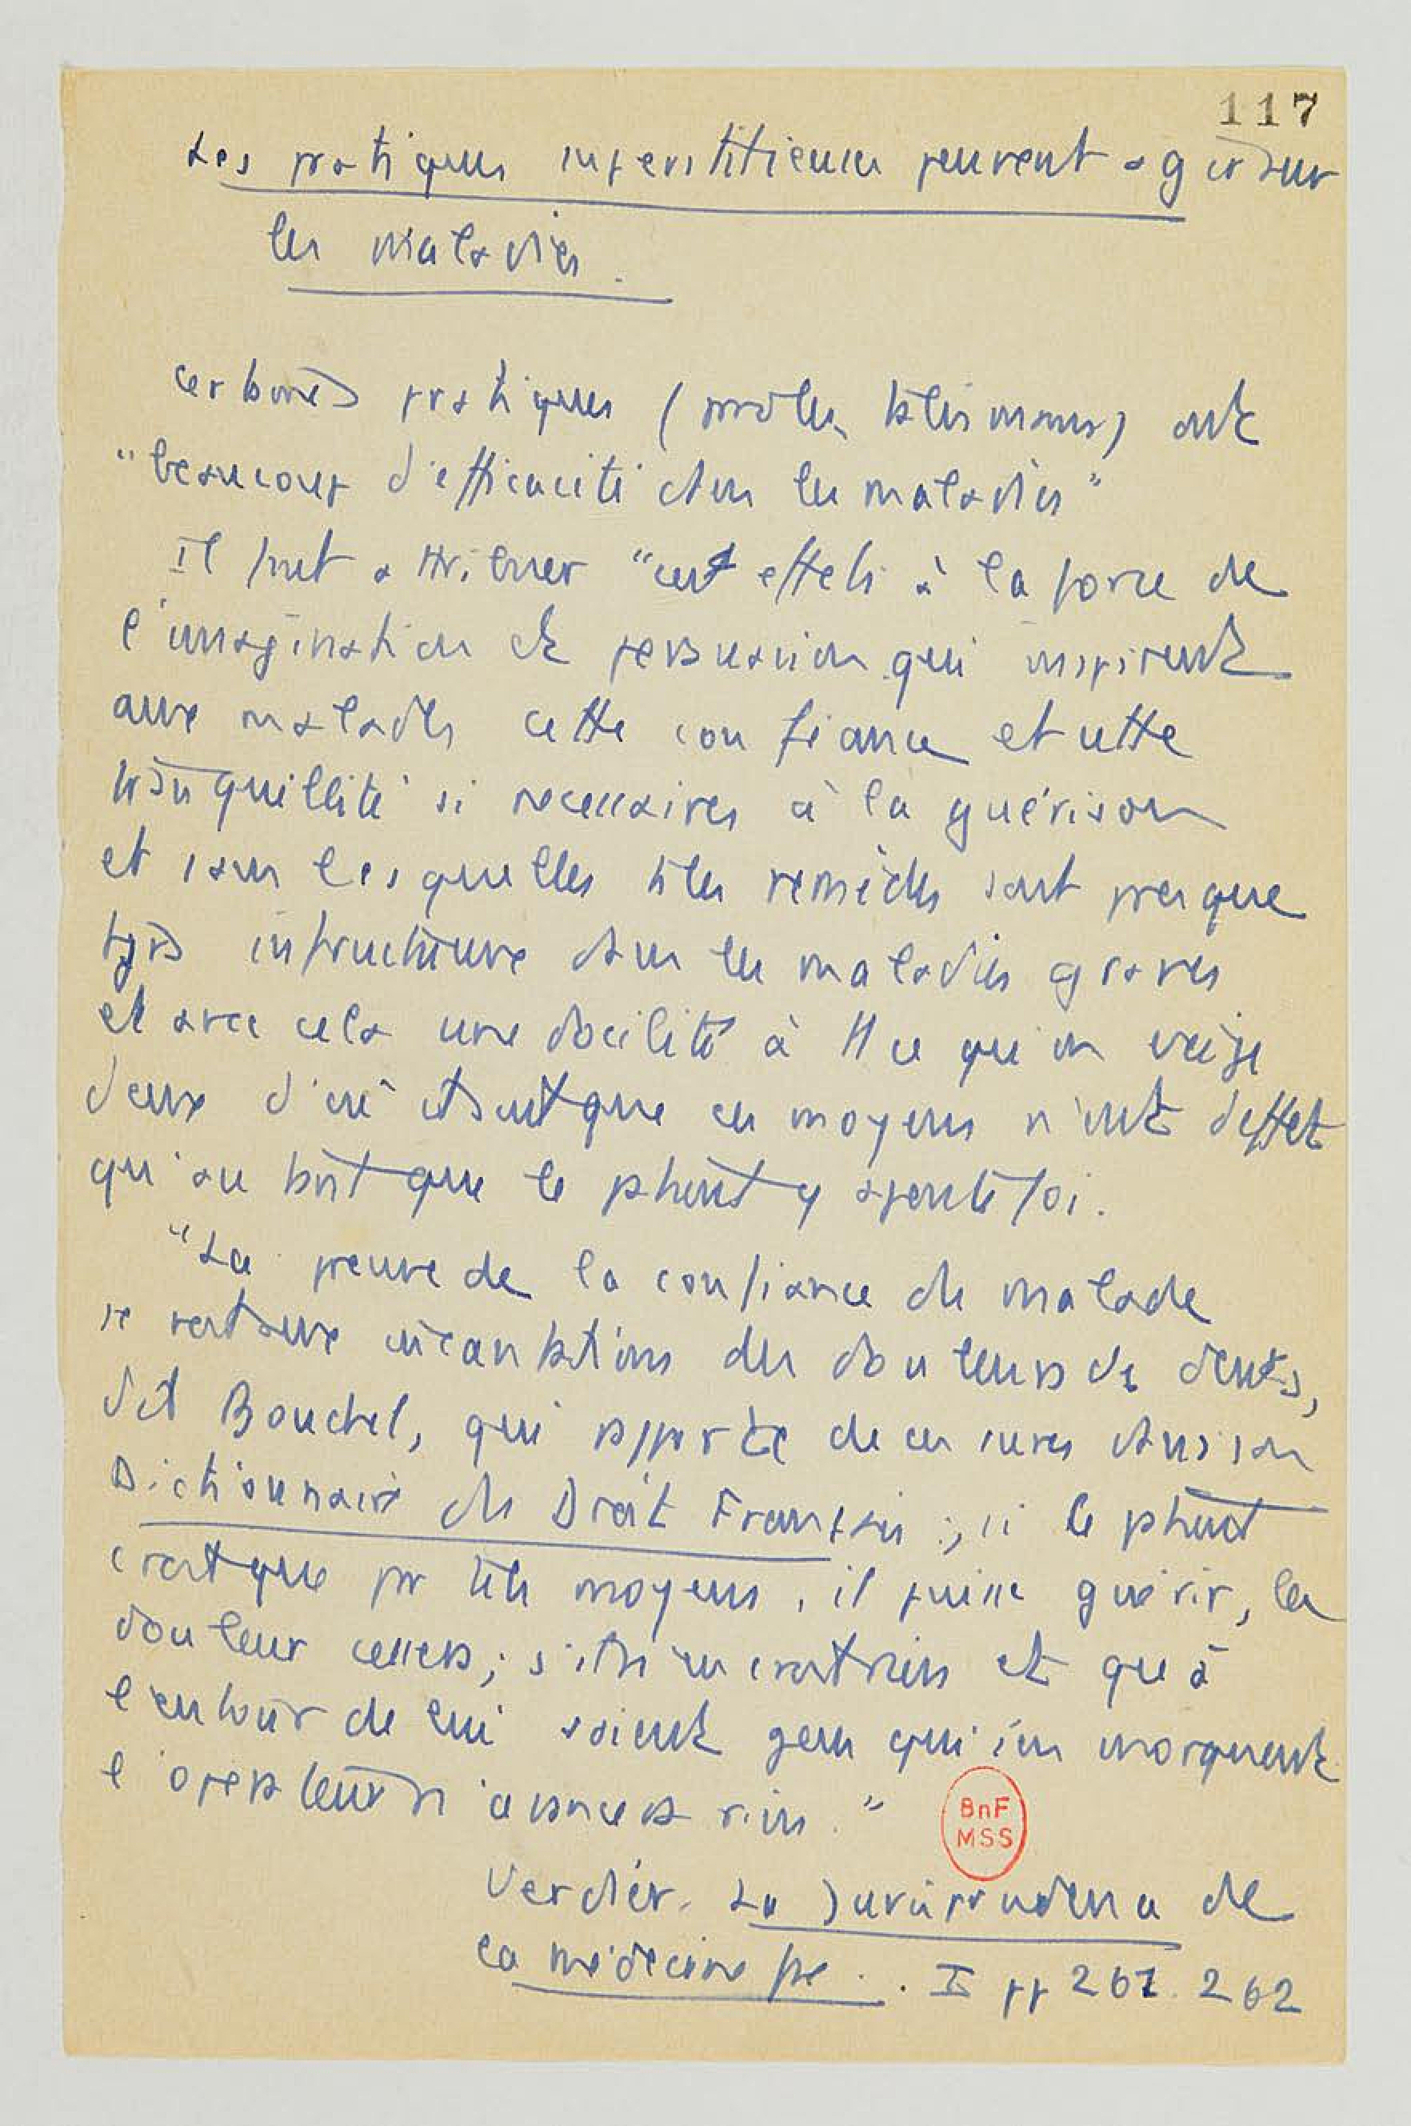 117
Les pratiques superstitieuses peuvent agir sur
les maladies.
Certaines pratiques (paroles, talismans) ont
"beaucoup d'efficacité dans les maladies"
Il faut attribuer "cet effets à la force de
l'imagination et persuasion qui inspirent
aux malades cette confiance et cette
tranquillité si necessaires à la guérison
et sans lesquelles ts les remèdes sont presque
tjrs infructueux dans les maladies graves
et avec cela une docilité à tt ce qu'on exige
d'eux d'où
qu'au tant que le patient y ajoute foi.
"La preuve de la confiance du malade
se voit aux incantations des douleurs de dents,
dit Bouchel, qui apporte de ces cures dans son
Dictionnaire du Droit Français ; si le patient
croit que par tels moyens, il puisse guérir, la
douleur cessera ; s'il n'en croit rien et qu'à
l'entour de lui soient gens qui s'en moquent
l'opérateur n'avancera rien."
BnF
MSS
Verdier. La Jurisprudence de
la médecine fse . . I pp 261. 262